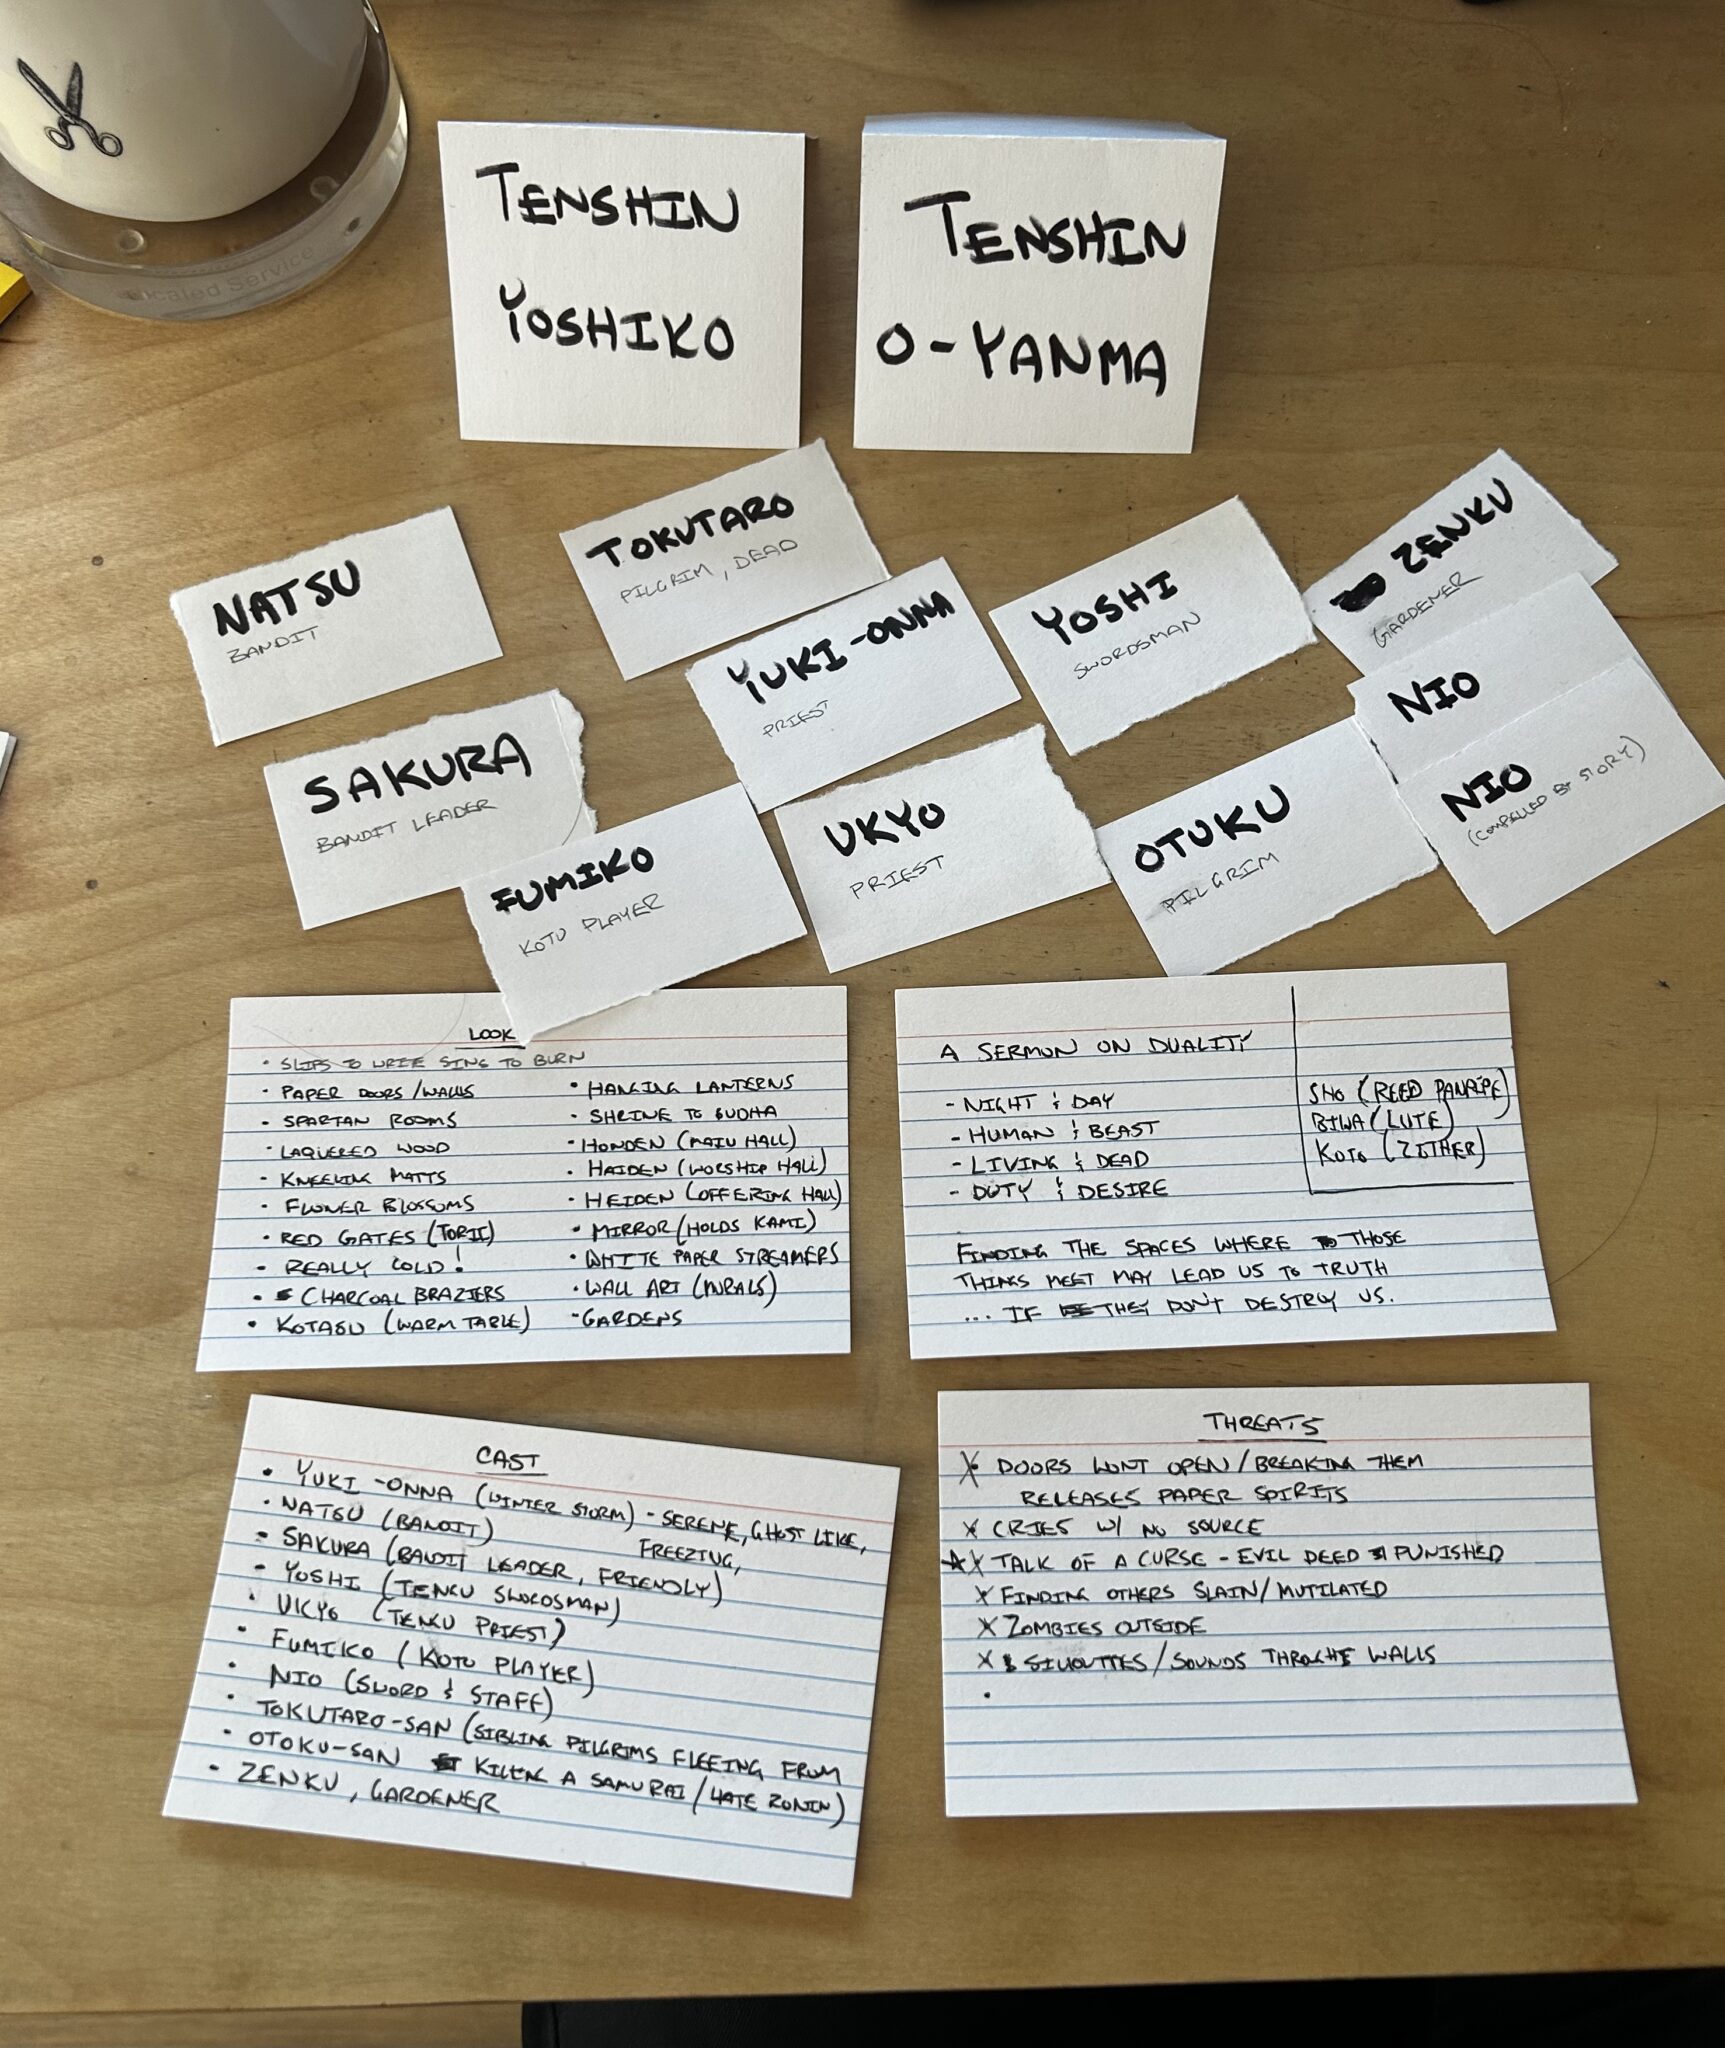 Located Service
TENSHIN
YOSHIKO
TENSHIN
O-YANMA
NATSU
BANDIT
TOKUTARO
PILGRIM, DEAD
YUKI-ONNA
PRIEST
YOSHI
SWORDSMAN
ZENKU
GARDENER
NIO
NIO
(COMPELLED BY STORY)
SAKURA
BANDIT LEADER
FUMIKO
KOTO PLAYER
UKYO
PRIEST
OTUKU
PILGRIM
LOOK
• SLIPS TO WRITE SINS TO BURN
• PAPER DOORS/WALLS
• SPARTAN ROOMS
• LAQUERED WOOD
• KNEELING MATTS
• FLOWER BLOSSOMS
• RED GATES (TORII)
• REALLY COLD!
• CHARCOAL BRAZIERS
• KOTASU (WARM TABLE)
• HANGING LANTERNS
• SHRINE TO BUDHA
• HONDEN (MAIN HALL)
• HAIDEN (WORSHIP HALL)
• HEIDEN (OFFERING HALL)
• MIRROR (HOLDS KAMI)
• WHITE PAPER STREAMERS
• WALL ART (MURALS)
• GARDENS
A SERMON ON DUALITY
- NIGHT & DAY
- HUMAN & BEAST
- LIVING & DEAD
- DUTY & DESIRE
FINDING THE SPACES WHERE THOSE
THINGS MEET MAY LEAD US TO TRUTH
... IF THEY DON'T DESTROY US.
SHO (REED PANPIPE)
BIWA (LUTE)
KOTO (ZITHER)
CAST
• YUKI-ONNA (WINTER STORM) - SERENE, GHOST LIKE,
FREEZING,
• NATSU (BANDIT)
• SAKURA (BANDIT LEADER, FRIENDLY)
• YOSHI (TENKU SWORDSMAN)
• UKYO (TENKU PRIEST)
• FUMIKO (KOTO PLAYER)
• NIO (SWORD & STAFF)
• TOKUTARO-SAN (SIBLING PILGRIMS FLEEING FROM
• OTOKU-SAN KILLING A SAMURAI/HATE RONIN)
• ZENKU, GARDENER
THREATS
X DOORS WONT OPEN/BREAKING THEM
RELEASES PAPER SPIRITS
X CRIES W/ NO SOURCE
★X TALK OF A CURSE - EVIL DEED PUNISHED
X FINDING OTHERS SLAIN/MUTILATED
X ZOMBIES OUTSIDE
X SILHOUTTES/SOUNDS THROUGH WALLS
•